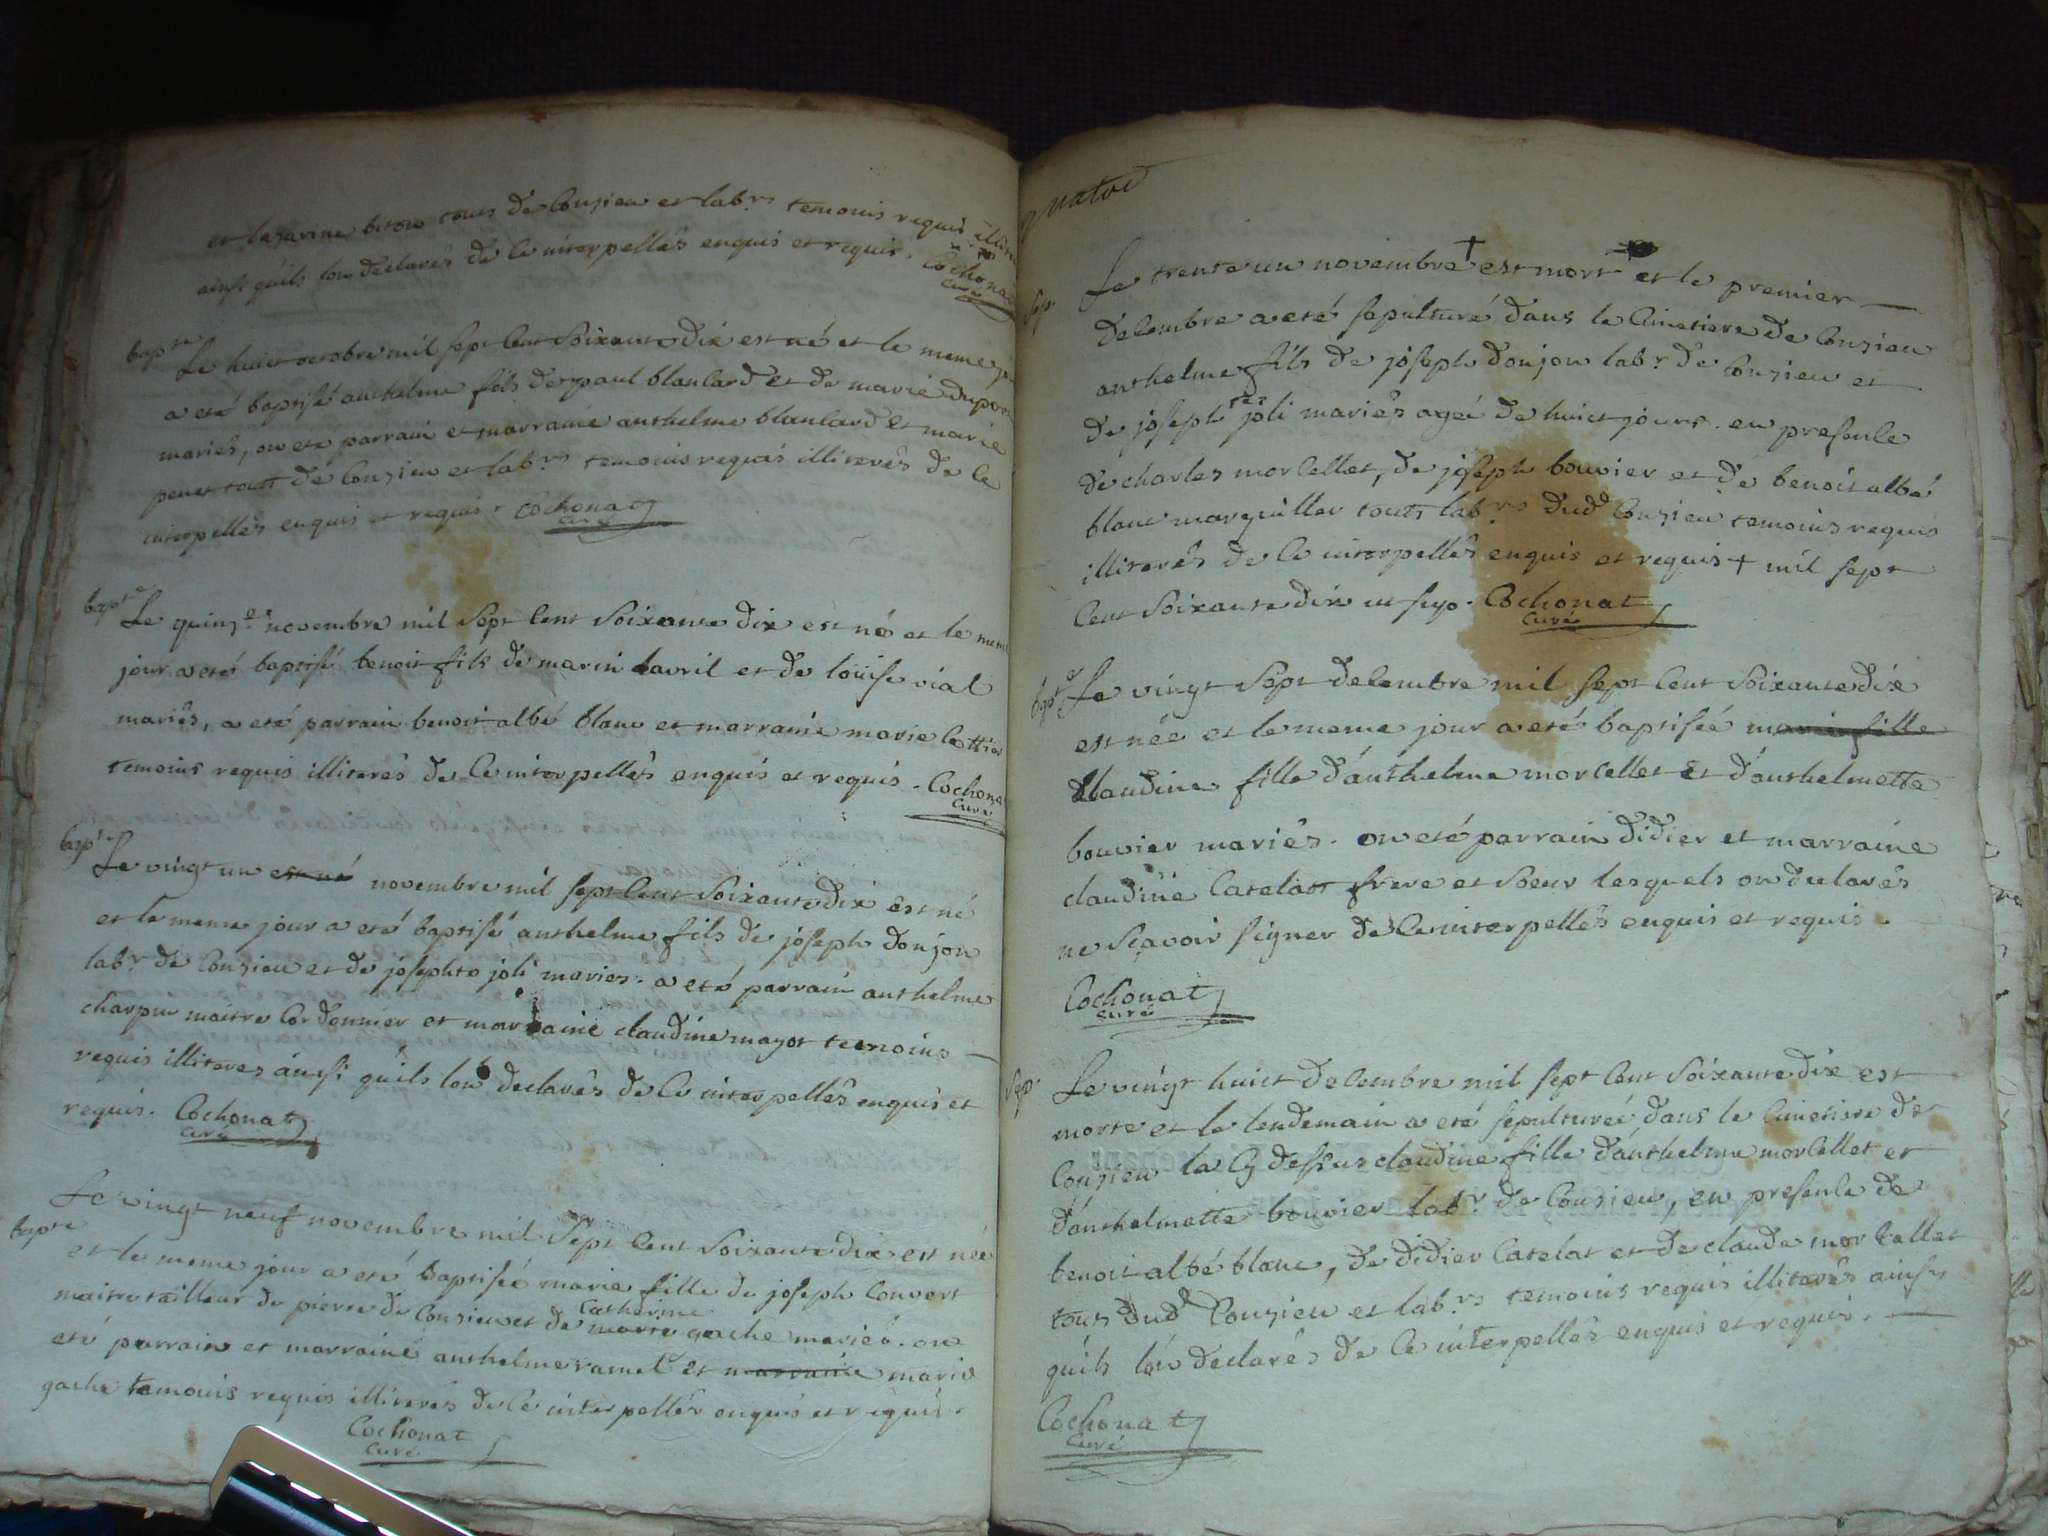 et lazarine beton tous de Conzieu et lab.rs temoins requis illiteres
ainsi quils lon declarés de ce interpellés enquis et requis. Cochonat
curé
bapte
Le huict octobre mil sept cent soixante dix est né et le meme jour
a eté baptisé anthelme fils de paul blanlard et de marie dupon
mariés, on eté parrain et marraine anthelme blanlard et marie
penet touts de Conzieu et lab.rs temoins requis illiterés de ce
interpellés enquis et requis. Cochonat
curé
bapte
Le quinze novembre mil sept cent soixante dix est né et le meme
jour a eté baptisé benoit fils de marin lavril et de loüise vial
mariés, a eté parrain benoit albé blanc et marraine marie
temoins requis illiterés de ce interpellés enquis et requis. Cochonat
curé
bapte
Le vingt un est né novembre mil sept cent soixante dix est né
et le meme jour a eté baptisé anthelme fils de joseph donjon
lab.r de Conzieu et de josephte joli mariés. a eté parrain anthelme
charpin maitre cordonnier et marraine claudine mayot temoins
requis illiteres ainsi quils lon declarés de ce interpellés enquis et
requis. Cochonat
curé
bapte
Le vingt neuf novembre mil sept cent soixante dix est née
et le meme jour a eté baptisée marie fille de joseph Convert
maitre tailleur de pierre de Conzieu et de marie gache mariés. on
catherine
eté parrain et marraine anthelme ramel et marraine marie
gache temoins requis illiterés de ce interpellés enquis et requis.
Cochonat
curé
quatre
sep.
Le trente un novembre + est mort et le premier
decembre a eté sepulturé dans le cimetiere de Conzieu
anthelme fils de joseph donjon lab.r de Conzieu et
de joseph joli mariés ageé de huict jours. en presence
de charles morcellet, de joseph bouvier et de benoit albé
blanc marguiller touts lab.rs dud Conzieu temoins requis
illiterés de ce interpellés enquis et requis + mil sept
cent soixante dix ut sup. Cochonat
curé
bapte
Le vingt sept decembre mil sept cent soixante dix
est née et le meme jour a eté baptiseé marie fille
claudine fille d'anthelme morcellet et d'anthelmette
bouvier mariés. on eté parrain didier et marraine
claudine catelat frere et soeur lesquels on declarés
ne sçavoir signer de ce interpellés enquis et requis.
Cochonat
curé
sep.
Le vingt huict decembre mil sept cent soixante dix est
morte et le lendemain a eté sepultureé dans le cimetiere de
Conzieu la cy dessus claudine fille d'anthelme morcellet et
d'anthelmette bouvier lab.r de Conzieu, en presence de
benoit albé blanc, de didier catelat et de claude morcellet
tous dud Conzieu et lab.rs temoins requis illiterés ainsy
quils lon declarés de ce interpellés enquis et requis.
Cochonat
curé